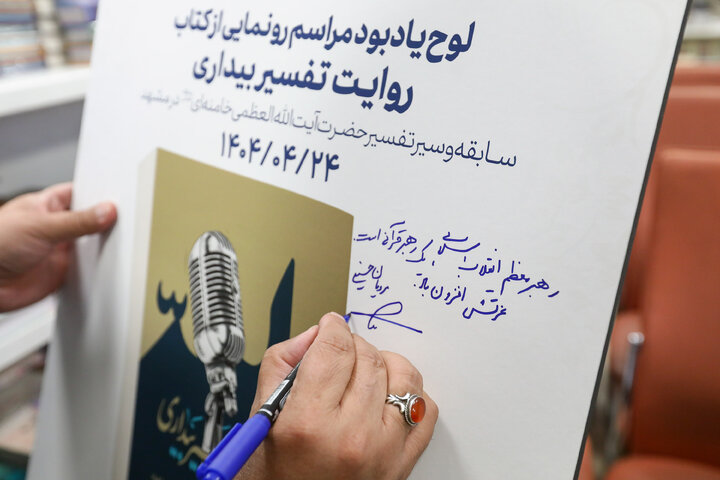 لوح یادبود مراسم رونمایی از کتاب
روایت تفسیر بیداری
سابقه و سیر تفسیر حضرت آیت‌الله العظمی خامنه‌ای در مشهد
۱۴۰۴/۰۴/۲۴
رهبر معظم انقلاب اسلامی یک رهبر قرآنی است.
عزتش افزون باد.
حسینی
بیداری